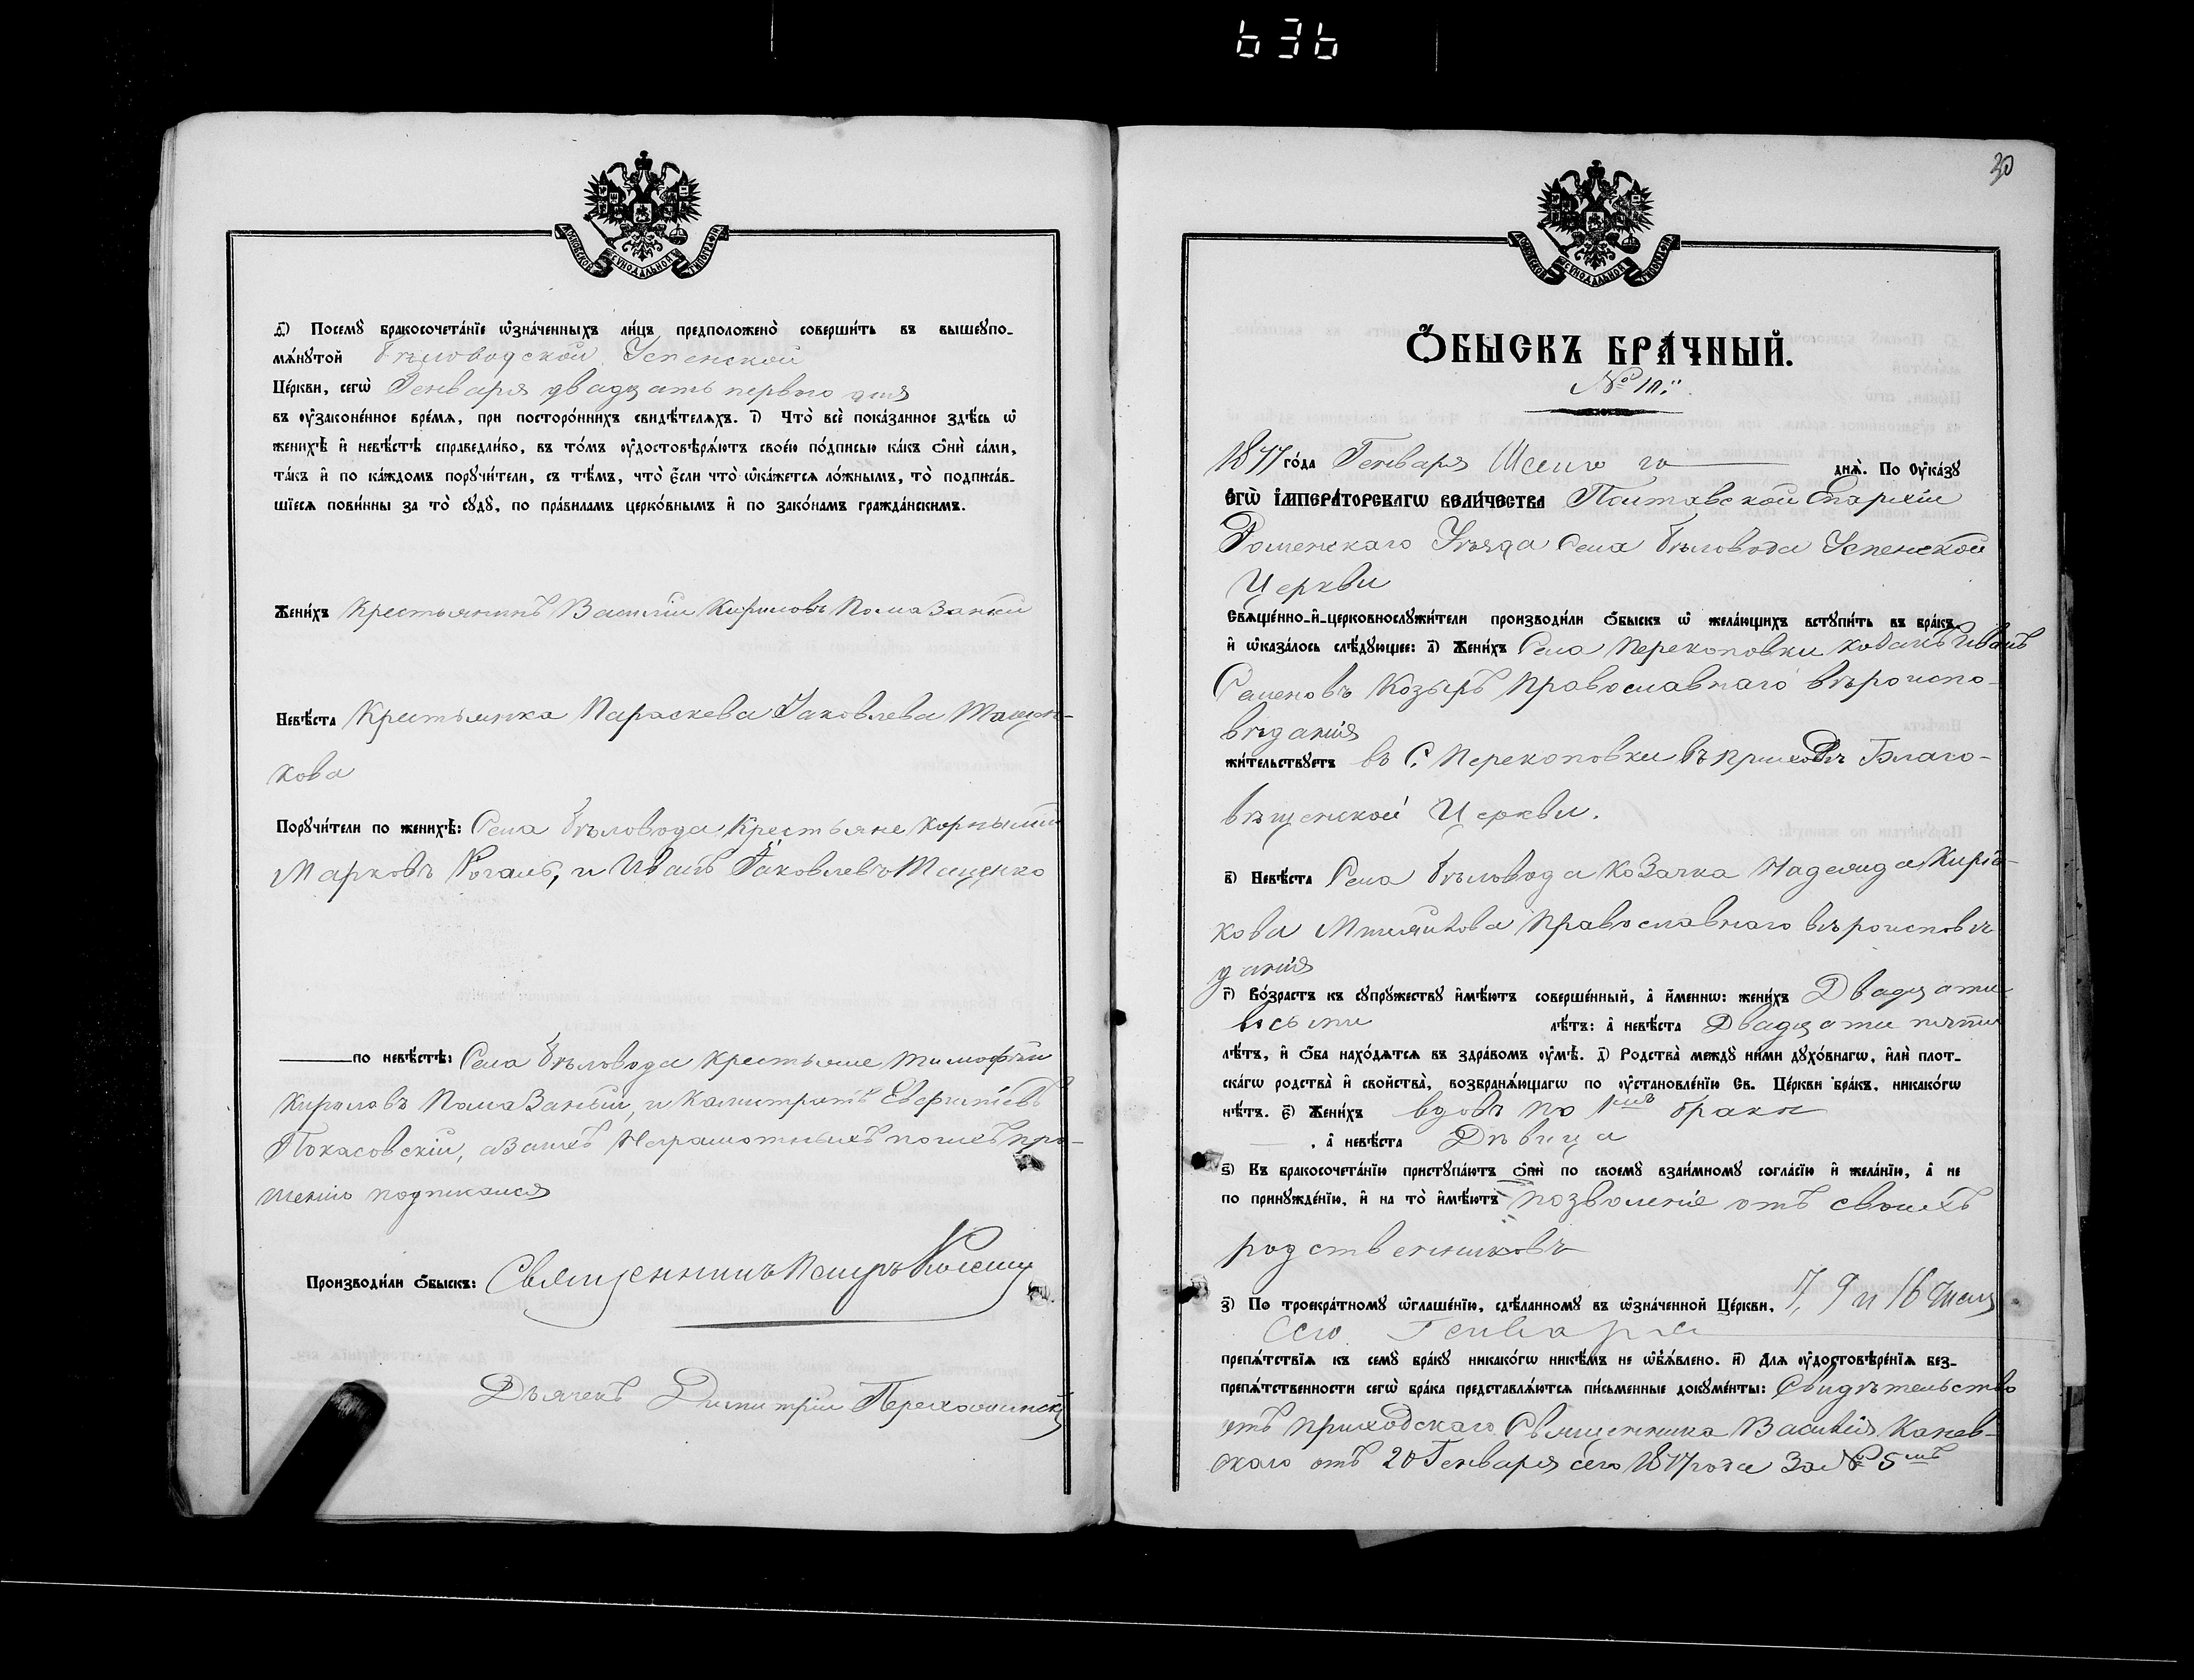 636
МОСКОВСКОЙ СУНОДАЛЬНОЙ ТИПОГРАФІИ
д҃) Посемꙋ̀ бракосочета́нїе ѡ҆зна́ченныхъ ли́цъ предположено̀ соверши́ть въ вышеупо-
мѧ́нꙋтой Бѣловодской Успенской
Це́ркви, сегѡ̀ Генваря двадцать первого дня
въ ᲂу҆законе́нное вре́мѧ, при посторо́ннихъ свидѣ́телѧхъ. і҃) Что̀ всѐ пока́занное здѣ́сь ѡ҆
женихѣ̀ и҆ невѣ́стѣ справедли́во, въ то́мъ ᲂу҆достовѣрѧ́ютъ свое́ю по́дписью ка́къ ѻ҆нѝ са́ми,
та́къ и҆ по ка́ждомъ порꙋчи́тели, съ тѣ́мъ, что̀ є҆́сли что̀ ѡ҆ка́жется ло́жнымъ, то̀ подписа́в-
шїеся пови́нны за то̀ сꙋдꙋ̀, по пра́виламъ церко́внымъ и҆ по зако́намъ гражда́нскимъ.
Жени́хъ Крестьянинъ Василій Кириловъ Помазанки
Невѣ́ста Крестьянка Параскева Іаковлева Мащен-
кова
Порꙋчи́тели по женихѣ̀: Села Бѣловода Крестьяне Корнилій
Марковъ Рогаль, и Иванъ Іаковлевъ Мащенко
по невѣ́стѣ: Села Бѣловода Крестьяне Тимофѣй
Кириловъ Помазаный, и Калистратъ
Покасовскій, а за нихъ Неграмотныхъ по ихъ про-
шенію подписался
Производи́ли ѻ҆́быскъ: Священникъ Петръ
Дьячекъ Димитрій
МОСКОВСКОЙ СУНОДАЛЬНОЙ ТИПОГРАФІИ
30
Ѻ҆БЫСКЪ БРА́ЧНЫЙ.
№ 10."
1877 го́да Генваря дня̀. По ᲂу҆ка́зꙋ
Є҆ГѠ̀ І҆МПЕРА́ТОРСКАГѠ ВЕЛИ́ЧЕСТВА Полтавской Епархіи
Роменскаго Уѣзда Села Бѣловода Успенской
Церкви
Свѧще́нно-и҆-церковнослꙋжи́тели производи́ли ѻ҆́быскъ ѡ҆ жела́ющихъ встꙋпи́ть въ бра́къ
и҆ ѡ҆каза́лось слѣ́дꙋющее: а҃) Жени́хъ Села Перекоповки козакъ Иванъ
Семеновъ Козырь Православнаго вѣроиспо-
вѣданія
жи́тельствꙋетъ въ С. Перекоповки въ приходѣ Благо-
вѣщенской Церкви.
в҃) Невѣ́ста Села Бѣловода Козачка Надежда Кирiа-
кова Православнаго вѣроисповѣ
данія
г҃) Во́зрастъ къ сꙋпрꙋ́жествꙋ и҆мѣ́ютъ соверше́нный, а҆ и҆́менно: жени́хъ Двадцати
восьми лѣ́тъ: а҆ невѣ́ста Двадцати пяти
лѣ́тъ, и҆ ѻ҆́ба нахо́дѧтся въ здра́вомъ ᲂу҆мѣ̀. д҃) Родства̀ междꙋ̀ ни́ми дꙋхо́внагѡ, и҆лѝ плот-
ска́гѡ родства̀ и҆ свойства̀, возбранѧ́ющагѡ по ᲂу҆становле́нїю Св. Це́ркви бра́къ, никако́гѡ
нѣ́тъ. є҃) Жени́хъ вдовъ по 1мъ бракѣ
, а҆ невѣ́ста Дѣвица
ѕ҃) Къ бракосочета́нїю пристꙋпа́ютъ ѻ҆нѝ по своемꙋ̀ взаи́мномꙋ согла́сїю и҆ жела́нїю, а҆ не
по принꙋжде́нїю, и҆ на то̀ и҆мѣ́ютъ позволеніе отъ своихъ
родственниковъ
з҃) По троекра́тномꙋ ѡ҆глаше́нїю, сдѣ́ланномꙋ въ ѡ҆зна́ченной Це́ркви, 7, 9 и 16 чисел
Сего Генваря
препѧ́тствїѧ къ семꙋ̀ бра́кꙋ никако́гѡ никѣ́мъ не ѡ҆б̾ѧ́влено. и҃) Для ᲂу҆достовѣре́нїѧ без-
препѧ́тственности сегѡ̀ бра́ка представлѧ́ются пи́сьменные докꙋме́нты: Свидѣтельство
отъ приходскаго Священника Василія Канев-
скаго отъ 20 Генваря сего 1877 года За № 5мъ